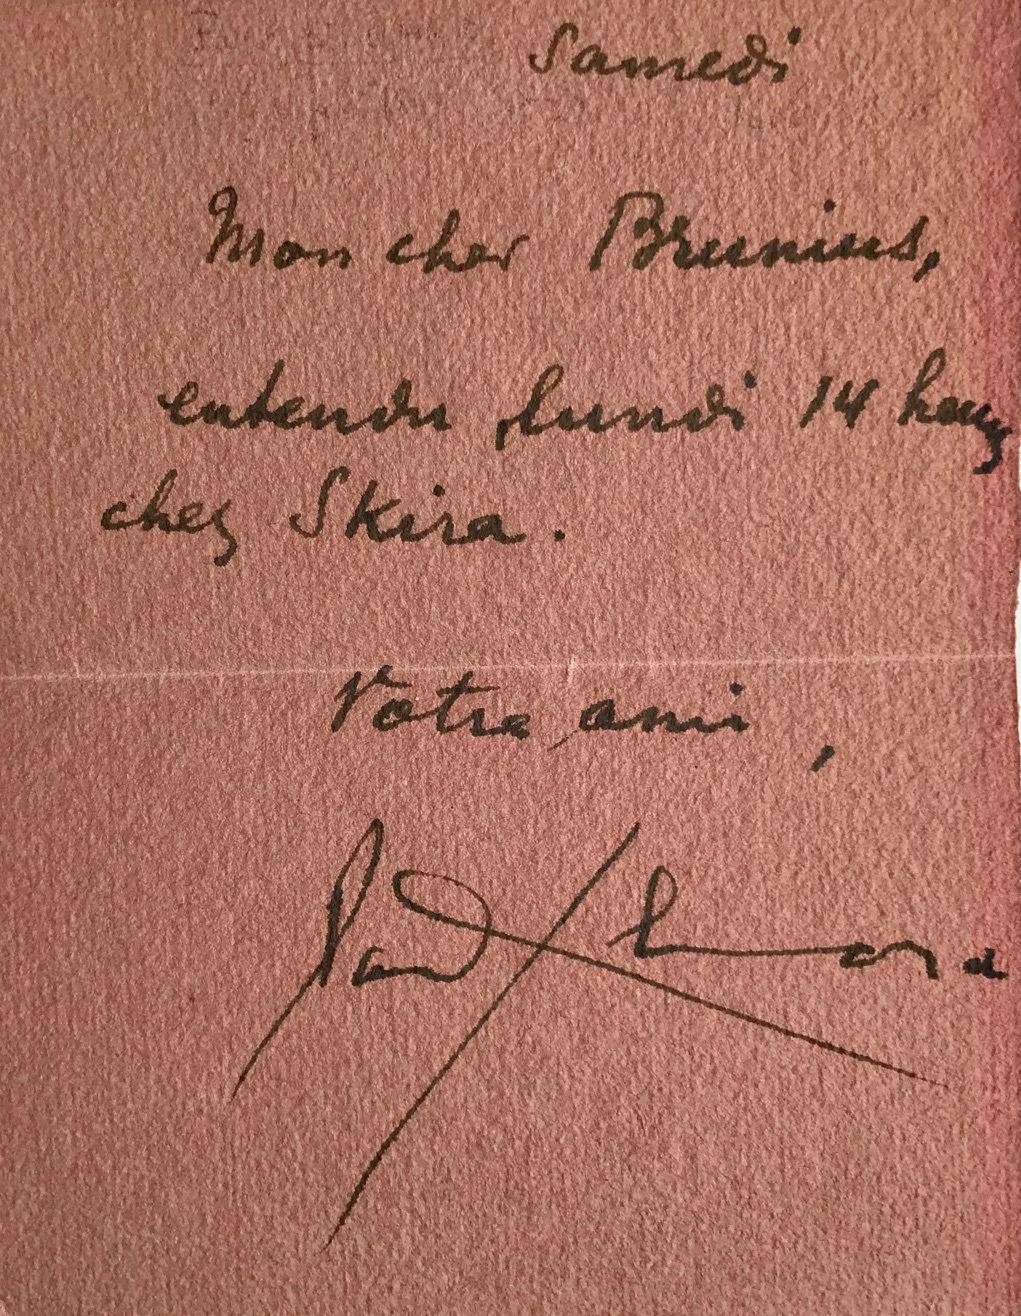 Samedi
Mon cher Brunius,
entendu, lundi 14 heures
chez Skira.
Votre ami,
Paul Eluard